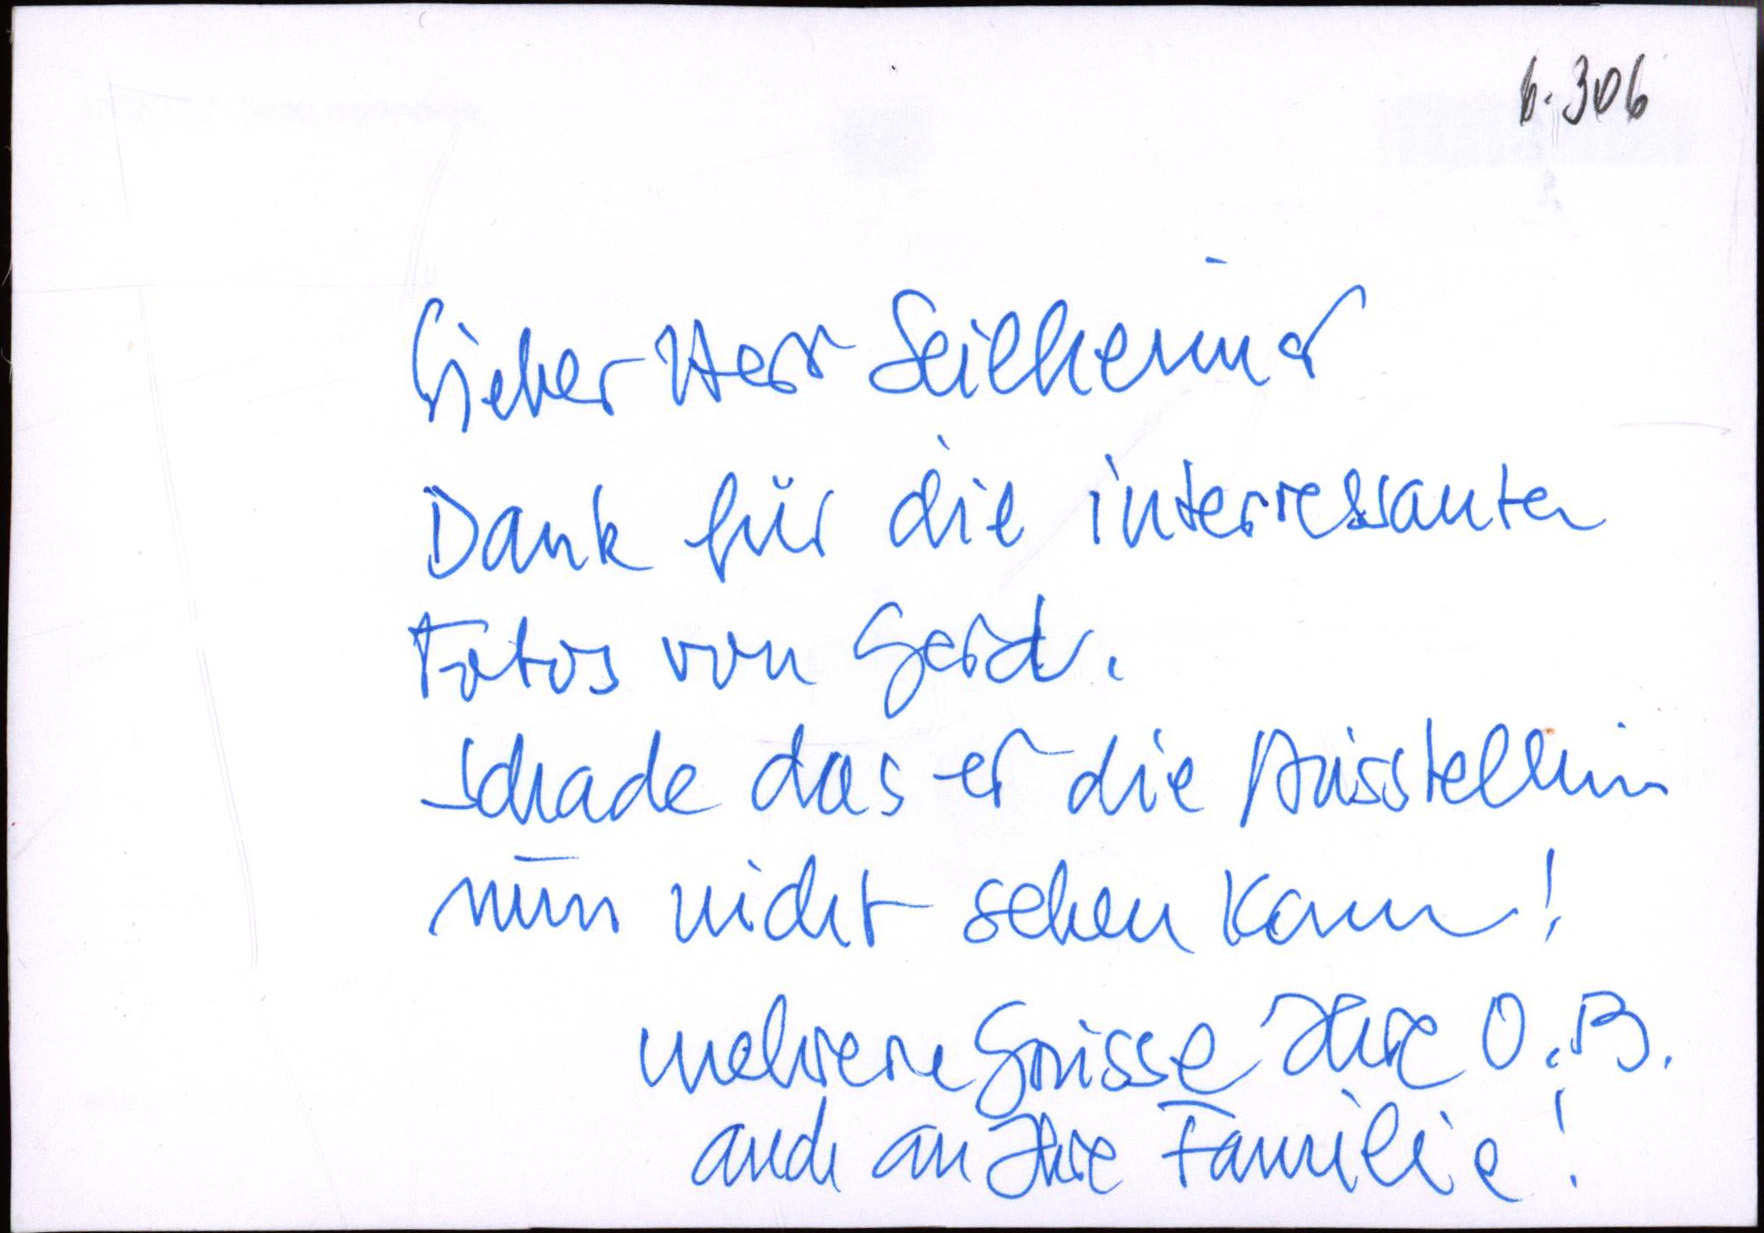 6.306
Lieber Herr Seilheimer
Dank für die interressanten
Fotos von Gerd.
Schade das er die Ausstellun
nun nicht sehen kann!
mehrere Grüsse Ihre O.B.
auch an Ihre Familie!